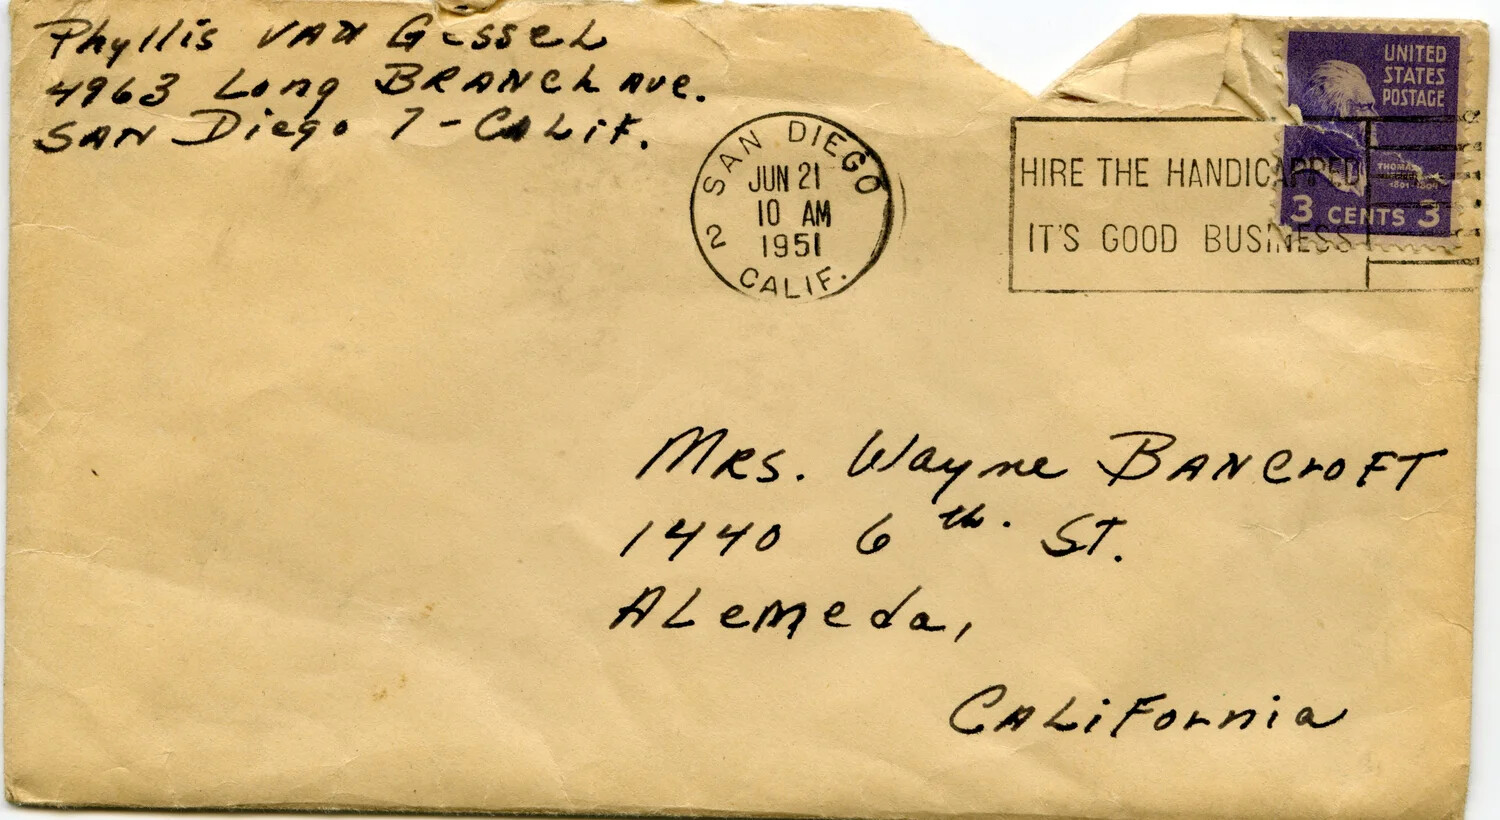 Phyllis VAN Gessel
4963 Long BRANCh AVe.
SAN Diego 7 - CALiF.
SAN DIEGO
JUN 21
10 AM
1951
2 CALIF.
HIRE THE HANDICAPPED
IT'S GOOD BUSINESS
UNITED
STATES
POSTAGE
THOMAS
3 CENTS 3
MRS. Wayne BANCroFT
1440 6th. ST.
ALemeda,
CALiFornia